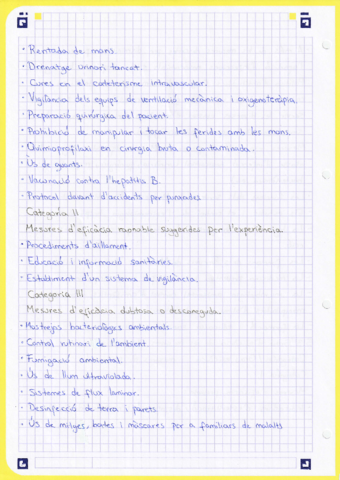 · Rentada de mans.
· Drenatge urinari tancat.
· Cures en el cateterisme intravascular.
· Vigilància dels equips de ventilació mecànica i oxigenoteràpia.
· Preparació quirúrgica del pacient.
· Prohibició de manipular i tocar les ferides amb les mans.
· Quimioprofilaxi en cirurgia bruta o contaminada.
· Ús de guants.
· Vacunació contra l'hepatitis B.
· Protocol davant d'accidents per punxades
Categoria II
Mesures d'eficàcia raonable suggerides per l'experiència.
· Procediments d'aïllament.
· Educació i informació sanitàries
· Establiment d'un sistema de vigilància.
Categoria III
Mesures d'eficàcia dubtosa o desconeguda.
· Mostrejos bacteriològics ambientals
· Control rutinari de l'ambient
· Fumigació ambiental.
· Ús de llum ultraviolada.
· Sistemes de flux laminar.
· Desinfecció de terra i parets
· Ús de mitges, bates i màscares per a familiars de malalts